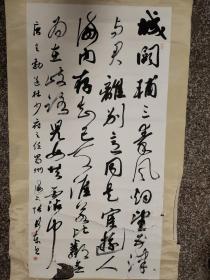 城闕輔三秦風烟望五津
与君離別意同是宦遊人
海内存知己天涯若比鄰无
為在歧路兒女共沾巾
唐王勃送杜少府之任蜀州